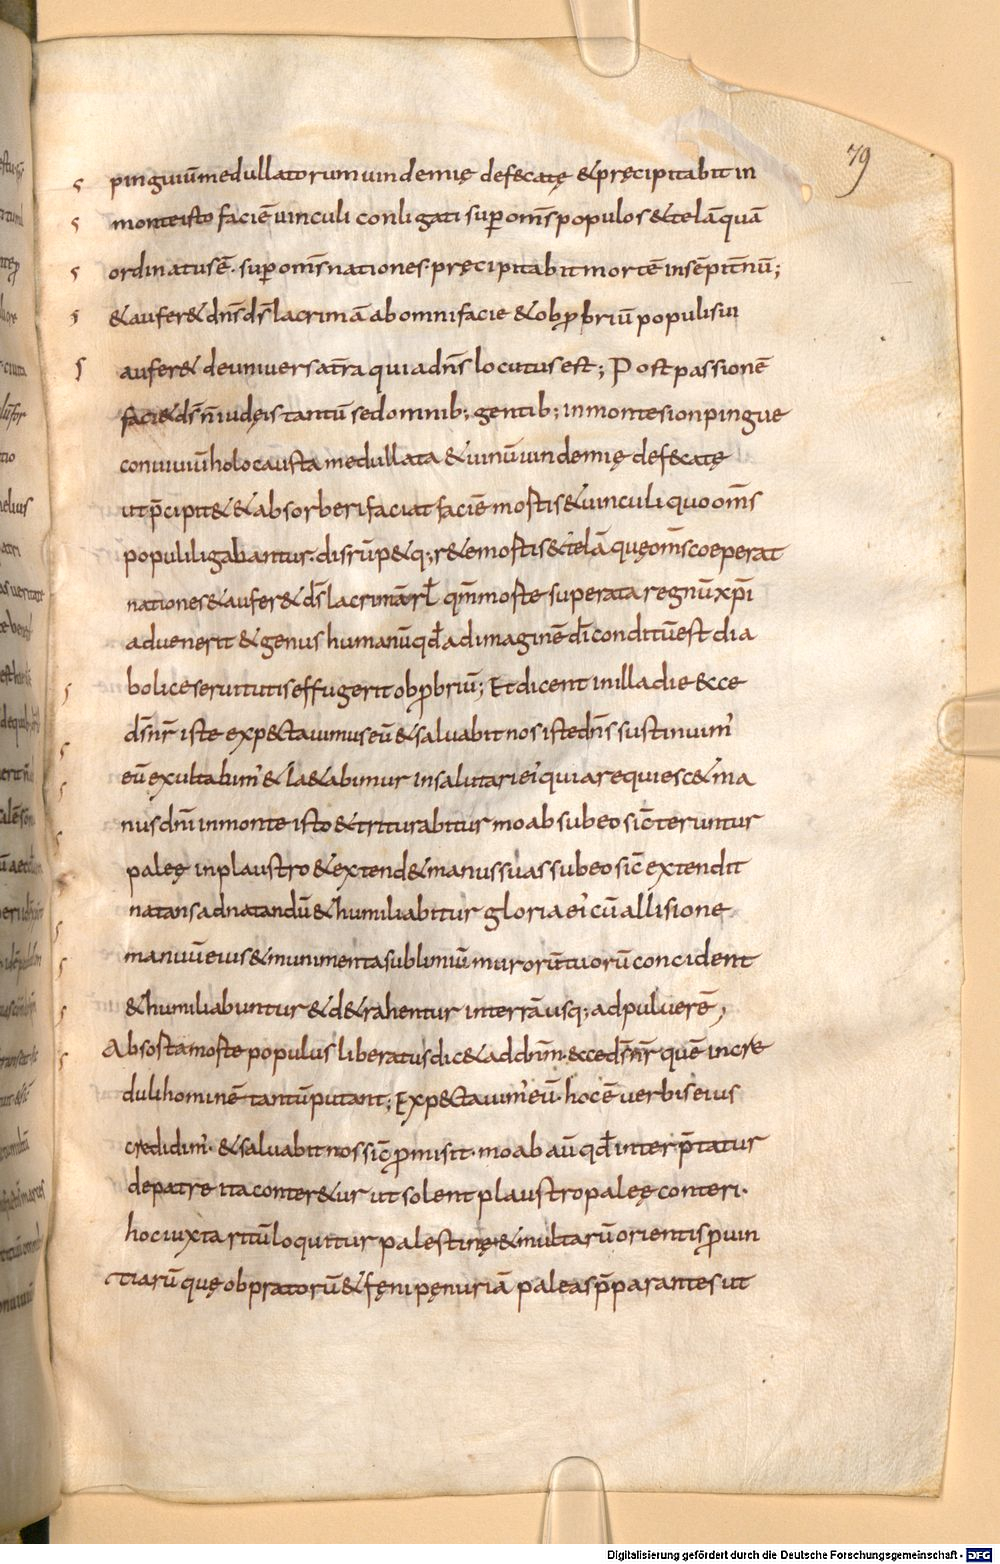 79
pinguiū medullatorum uindemię defęcatę & pręcipitabit in
monte isto faciē uinculi conligati sup̄ om̄s populos & telā quā
ordinatus ē· sup̄ om̄s nationes· pręcipitabit mortē insēpit̄nū;
& aufer& dn̄s ds̄ lacrimā ab omni facie & obp̄briū populi sui
aufer& de uniuersa t̄ra quia dn̄s locutus est; Post passionē
faci& ds̄ n̄ iudęis tantū sed omnib; gentib; in monte sion pingue
conuiuiū holocausta medullata & uinū uindemię def&catę
ut p̄cipit& & absorberi faciat faciē mortis & uinculi quo om̄s
populi ligabantur· disrūp& q; r&e mortis & telā quę om̄s coeperat
nationes & aufer& ds̄ lacrimā qm̄ morte superata regnū xp̄i
aduenerit & genus humanū qd̄ ad imaginē dī conditū est dia
bolice seruitutis effugerit obp̄briū; Et dicent in illa die ecce
ds̄ nr̄ iste exp&tauimus eū & saluabit nos iste dn̄s sustinuim'
eū exultabim' & l&abimur in salutari ei' quia requiesc& ma
nus dn̄i in monte isto & triturabitur moab sub eo sic̄ teruntur
paleę in plaustro & extend& manus suas sub eo sic̄ extendit
natans ad natandū & humiliabitur gloria ei' cū allisione
manuū eius & munimenta sublimiū murorū tuorū concident
& humiliabuntur & d&rahentur in terrā usq; ad puluerē;
Absorta morte populus liberatus dic& ad dn̄m· ecce ds̄ nr̄ quē incre
duli hominē tantū putant; Exp&tauim' eū· hoc ē uerbis eius
credidim'· & saluabit nos sic̄ p̄misit· moab aū qd̄ interp̄tatur
de patre ita conter&ur ut solent plaustro paleę conteri·
hoc iuxta ritū loquitur palestinę & multarū orientis p̄uin
tiarū quę ob pratorū & fęni pęnuriā paleas p̄parantes ut
Digitalisierung gefördert durch die Deutsche Forschungsgemeinschaft - DFG